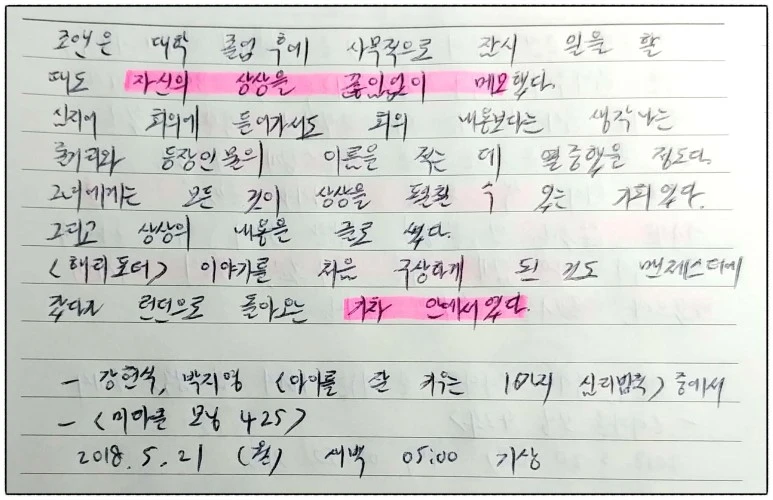 조앤은 대학 졸업 후에 사무직으로 잠시 일을 할
때도 자신의 상상을 끊임없이 메모했다.
심지어 회의에 들어가서도 회의 내용보다는 생각나는
줄거리와 등장인물의 이름을 적는 데 열중했을 정도다.
그녀에게는 모든 것이 상상을 펼칠 수 있는 기회였다.
그리고 상상의 내용을 글로 썼다.
<해리포터> 이야기를 처음 구상하게 된 것도 맨체스터에
갔다가 런던으로 돌아오는 기차 안에서였다.
- 강현식, 박지영 <아이를 잘 키우는 16가지 심리법칙> 중에서
- <미라클 모닝 425>
2018. 5. 21 (월) 새벽 05:00 기상